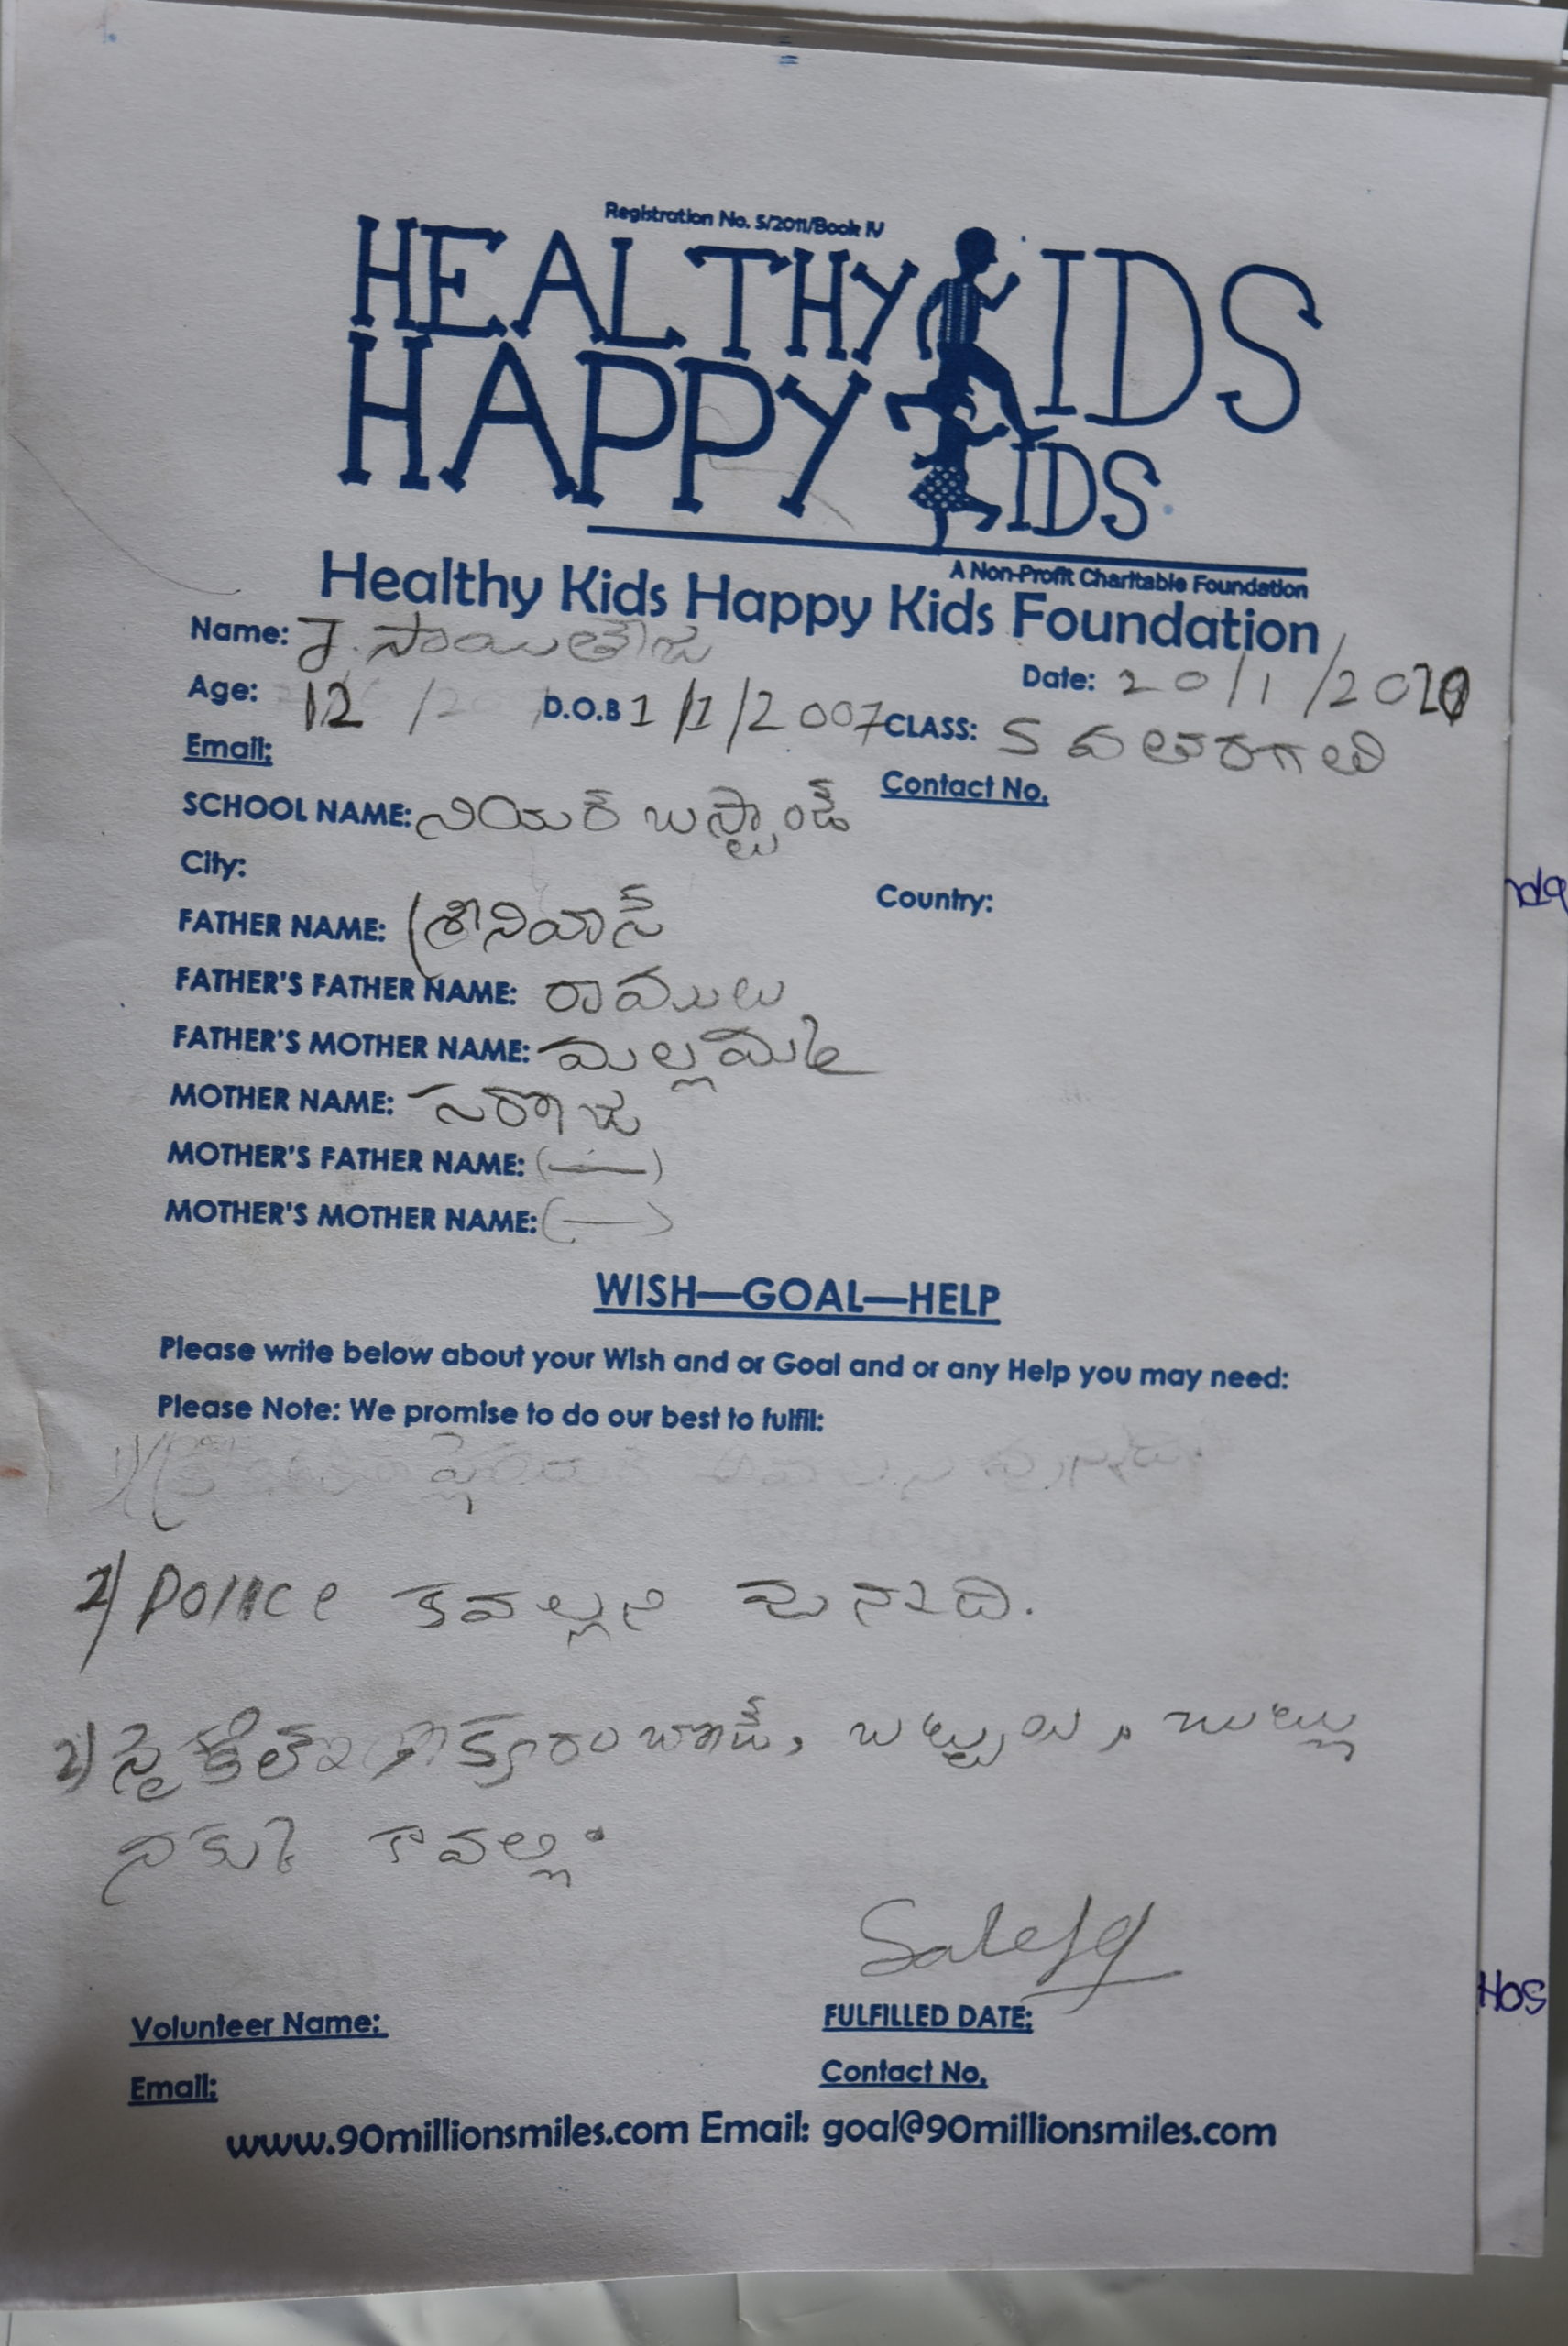 Registration No. 5/2011/Book IV
HEALTHY KIDS
HAPPY KIDS
A Non-Profit Charitable Foundation
Healthy Kids Happy Kids Foundation
Name: J. సాయితేజ
Date: 20/1/2020
Age: 12 D.O.B 1/1/2007 CLASS: 5 వ తరగతి
Email:
Contact No.
SCHOOL NAME: నియర్ బస్టాండ్
City:
Country:
FATHER NAME: శ్రీనివాస్
FATHER'S FATHER NAME: రాములు
FATHER'S MOTHER NAME: మల్లమ్మ
MOTHER NAME: సరోజ
MOTHER'S FATHER NAME: (—)
MOTHER'S MOTHER NAME: (—)
WISH—GOAL—HELP
Please write below about your Wish and or Goal and or any Help you may need:
Please Note: We promise to do our best to fulfil:
1) Police కవల్లని వునది.
2) బట్టలు,
నకు కావల్లి.
Volunteer Name:
FULFILLED DATE:
Email:
Contact No.
www.90millionsmiles.com Email: goal@90millionsmiles.com
Hos